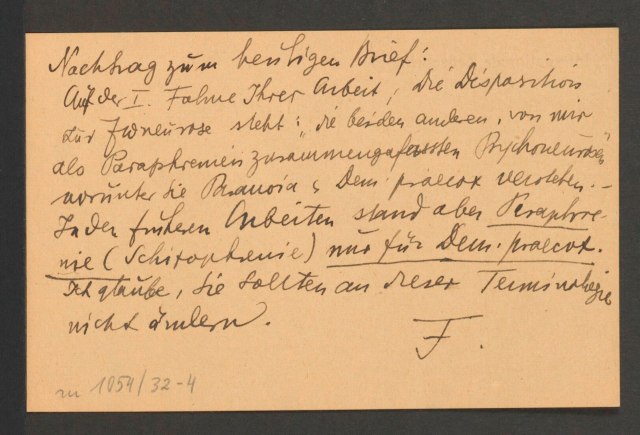 Nachtrag zum heutigen Brief:
Auf der I. Fahne Ihrer Arbeit, "Die Disposition
zur Zwneurose steht: "die beiden anderen, von mir
als Paraphrenien zusammengefassten Psychoneurosen"
worunter Sie Paranoia & Dem. praecox verstehen. –
In den früheren Arbeiten stand aber Paraphre-
nie (Schizophrenie) nur für Dem. praecox.
Ich glaube, Sie sollten an dieser Terminologie
nicht ändern.
F.
zu 1054/32-4